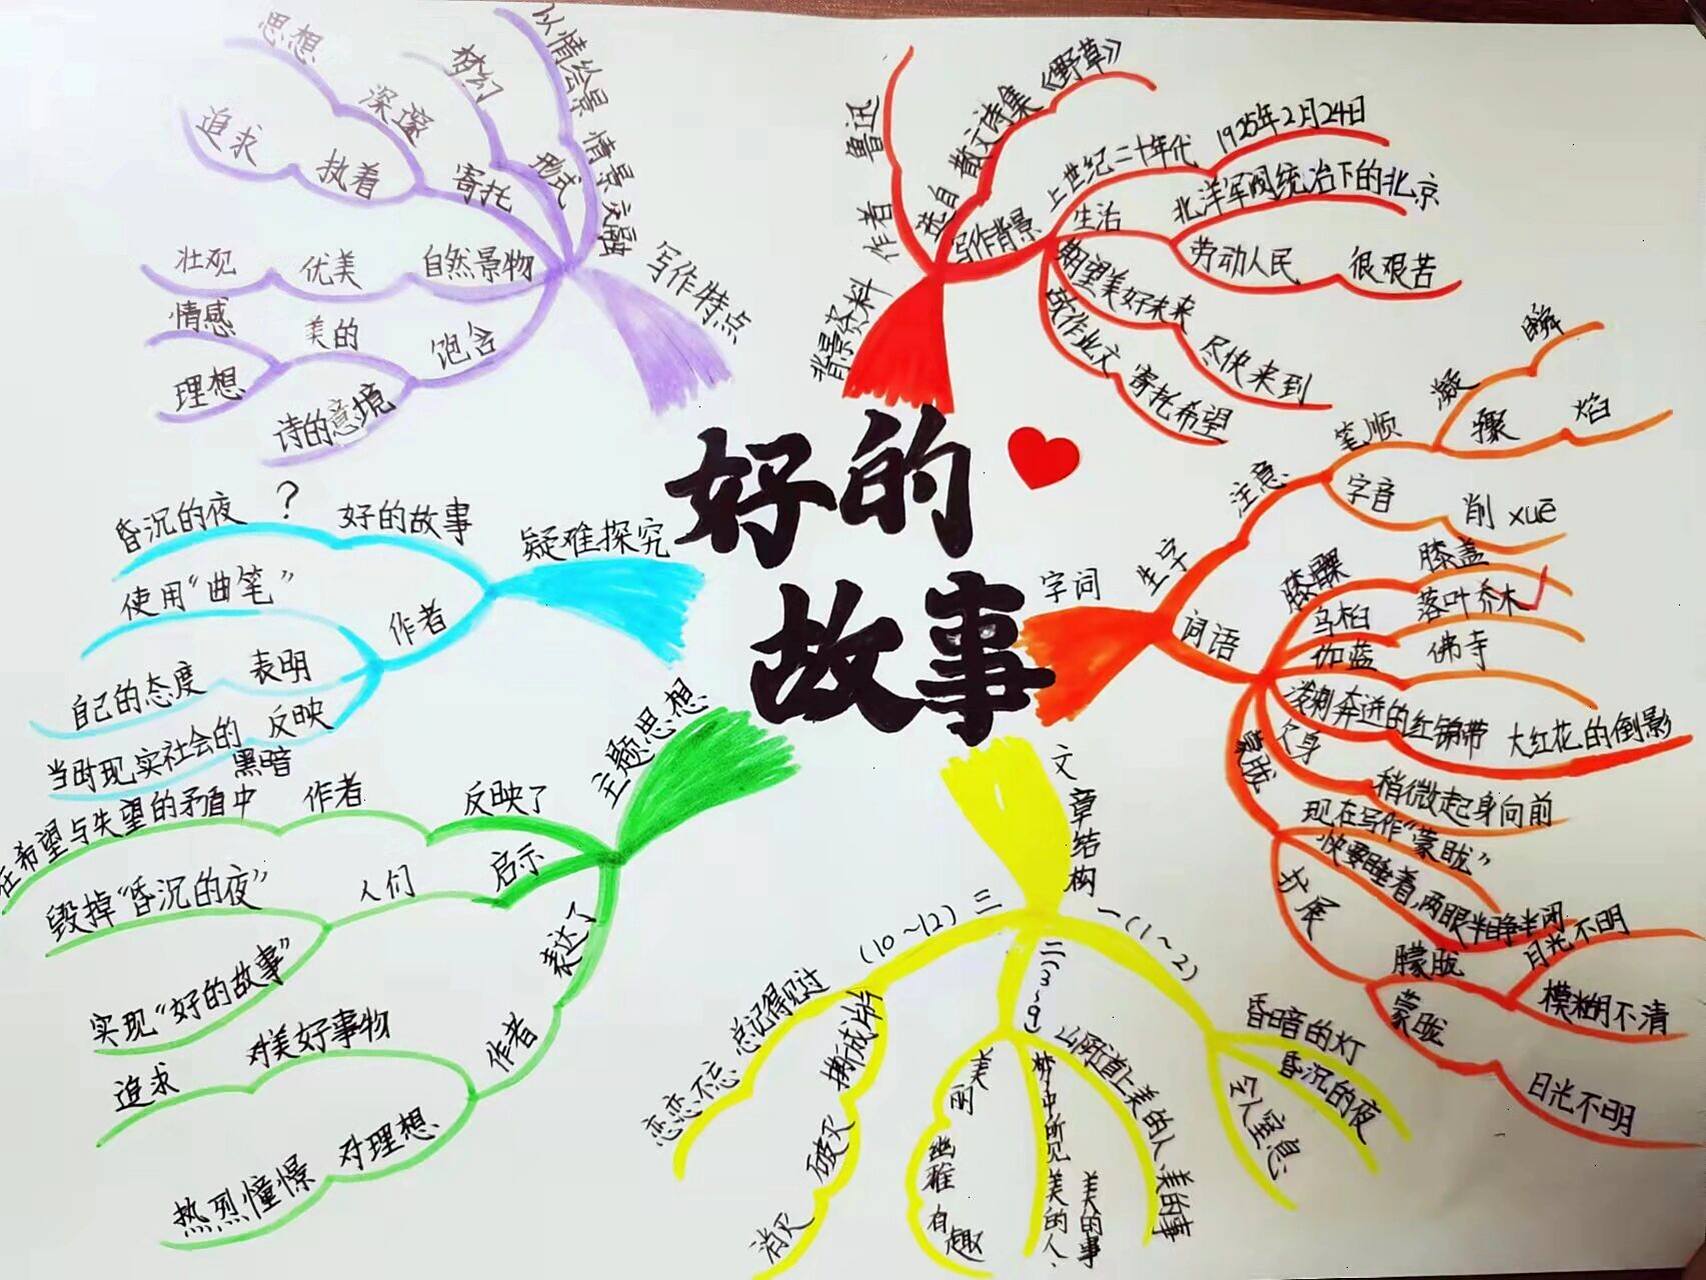 好的
故事
背景资料
作者
鲁迅
选自
散文诗集《野草》
写作背景
上世纪二十年代
1925年2月24日
生活
北洋军阀统治下的北京
劳动人民
很艰苦
期望美好未来
尽快来到
故作此文
寄托希望
字词
生字
注意
笔顺
凝
瞬
骤
焰
字音
削 xuē
词语
膝髁
膝盖
乌桕
落叶乔木
伽蓝
佛寺
泼剌奔迸的红锦带
大红花的倒影
欠身
稍微起身向前
蒙胧
现在写作“蒙眬”
快要睡着,两眼半睁半闭
扩展
朦胧
月光不明
模糊不清
曚昽
日光不明
文章结构
一(1～2)
昏暗的灯
昏沉的夜
令人窒息
二(3～9)
美丽
幽雅
有趣
梦中所见
美的人
美的事
山阴道上
美的人
美的事
三(10～12)
总记得见过
恋恋不忘
撕成碎
破灭
消灭
主题思想
反映了
作者
在希望与失望的矛盾中
启示
人们
毁掉“昏沉的夜”
实现“好的故事”
表达了
作者
对美好事物
追求
对理想
热烈憧憬
疑难探究
好的故事
?
昏沉的夜
作者
使用“曲笔”
表明
自己的态度
反映
当时现实社会的
黑暗
写作特点
以情绘景
情景交融
形式
梦幻
寄托
深邃
思想
执着
追求
自然景物
优美
壮观
饱含
美的
情感
理想
诗的意境